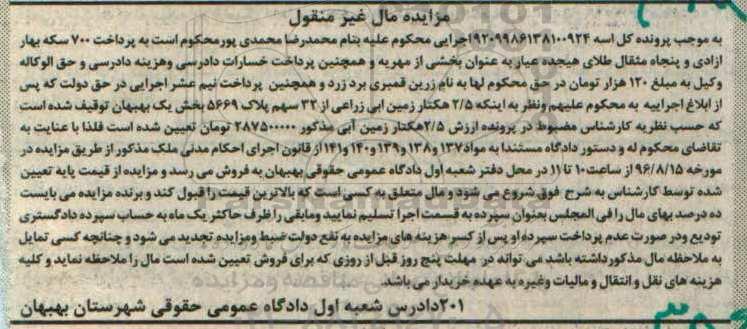 مزایده مال غیر منقول
به موجب پرونده کل اسه ۹۲۰۹۹۸۶۱۳۸۱۰۰۹۲۴اجرایی محکوم علیه بنام محمدرضا محمدی پورمحکوم است به پرداخت ۷۰۰ سکه بهار
ازادی و پنجاه مثقال طلای هیجده عیار به عنوان بخشی از مهریه و همچنین پرداخت خسارات دادرسی وهزینه دادرسی و حق الوکاله
وکیل به مبلغ ۱۲۰ هزار تومان در حق محکوم لها به نام زرین قمبری برد زرد و همچنین پرداخت نیم عشر اجرایی در حق دولت که پس
از ابلاغ اجراییه به محکوم علیهم ونظر به اینکه ۲/۵ هکتار زمین ابی زراعی از ۳۲ سهم پلاک ۵۶۶۹ بخش یک بهبهان توقیف شده است
که حسب نظریه کارشناس مضبوط در پرونده ارزش ۲/۵هکتار زمین آبی مذکور ۲۸۷۵۰۰۰۰۰ تومان تعیین شده است فلذا با عنایت به
تقاضای محکوم له و دستور دادگاه مستندا به مواد۱۳۷ و۱۳۸ و۱۳۹ و۱۴۰ و۱۴۱از قانون اجرای احکام مدنی ملک مذکور از طریق مزایده در
مورخه ۹۶/۸/۱۵ از ساعت۱۰ تا ۱۱ در محل دفتر شعبه اول دادگاه عمومی حقوقی بهبهان به فروش می رسد و مزایده از قیمت پایه تعیین
شده توسط کارشناس به شرح فوق شروع می شود و مال متعلق به کسی است که بالاترین قیمت را قبول کند و برنده مزایده می بایست
ده درصد بهای مال را فی المجلس بعنوان سپرده به قسمت اجرا تسلیم نمایید ومابقی را ظرف حاکثر یک ماه به حساب سپرده دادگستری
تودیع ودر صورت عدم پرداخت سپرده او پس از کسر هزینه های مزایده به نفع دولت ضبط ومزایده تجدید می شود و چنانچه کسی تمایل
به ملاحظه مال مذکورداشته باشد می تواند در مهلت پنج روز قبل از روزی که برای فروش تعیین شده است مال را ملاحظه نماید و کلیه
هزینه های نقل و انتقال و مالیات وغیره به عهده خریدار می باشد.
۲۰۱دادرس شعبه اول دادگاه عمومی حقوقی شهرستان بهبهان